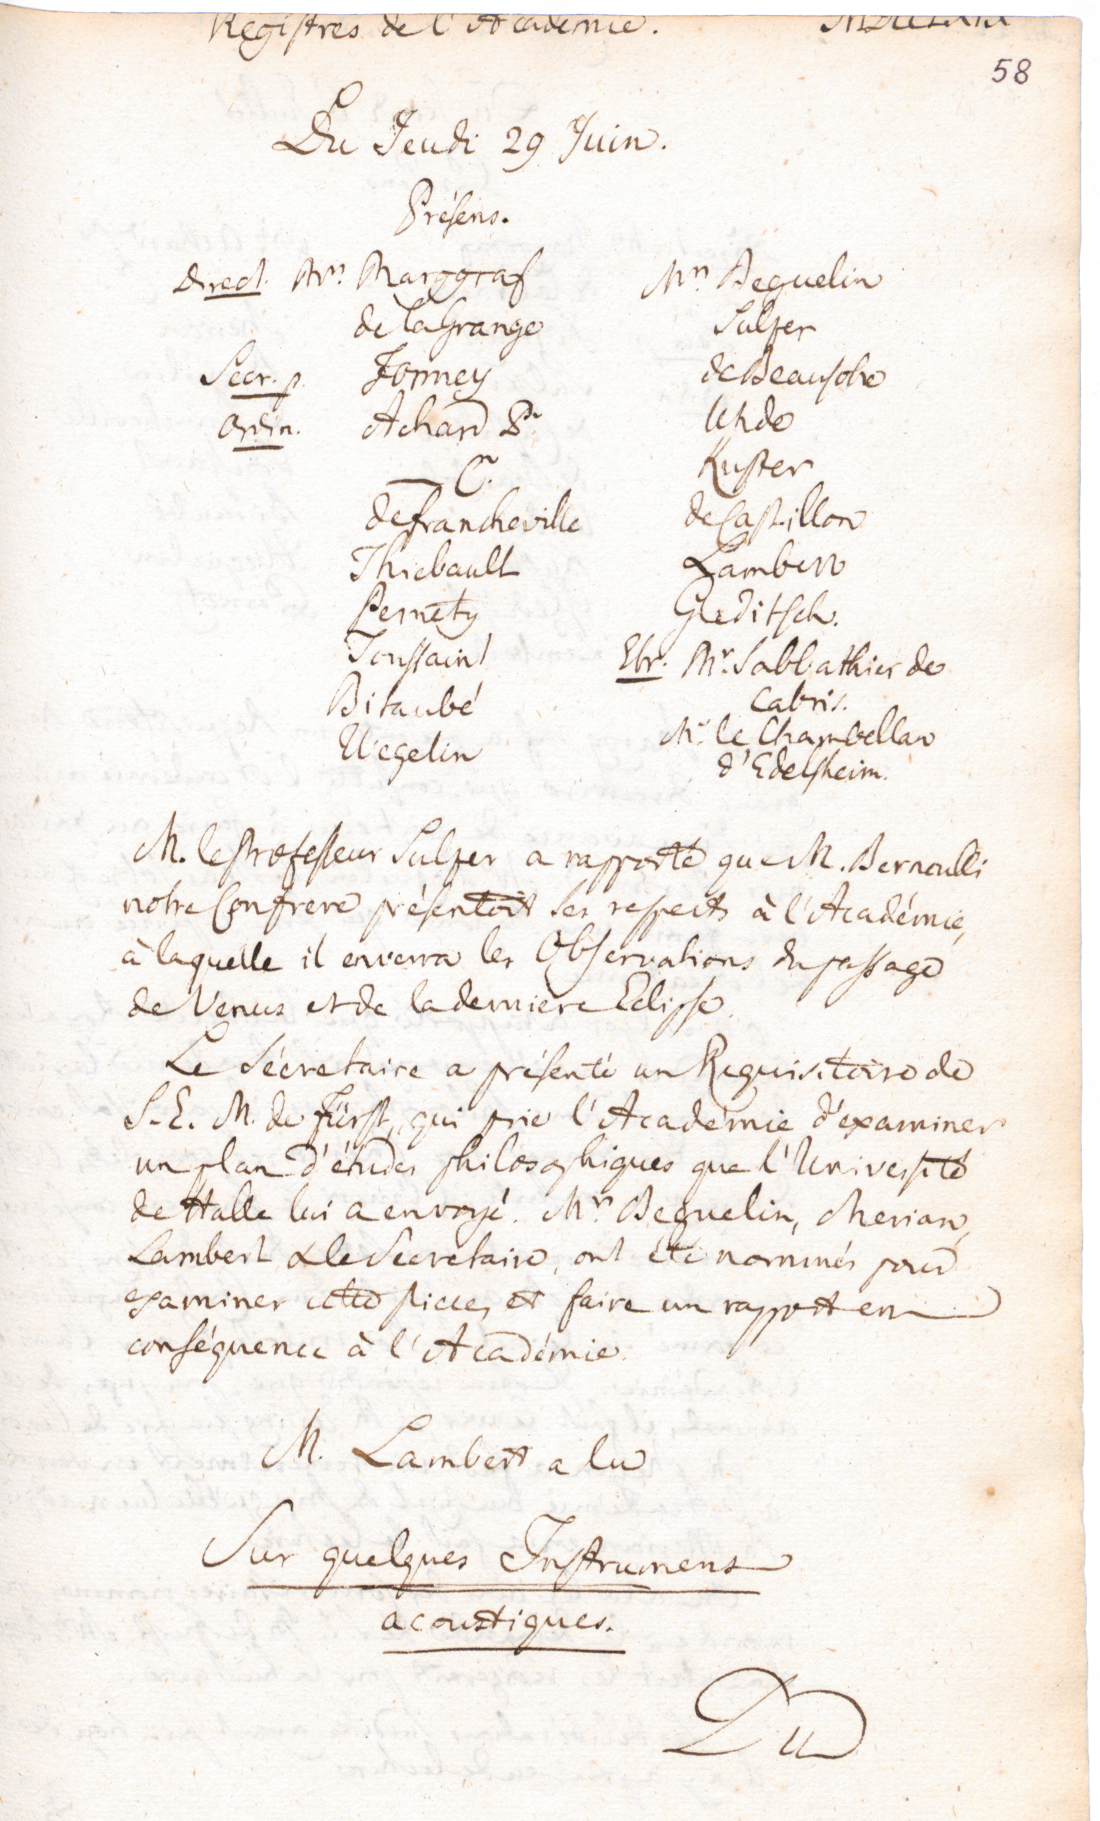 Registres de l'Academie. MDCCLXIX
58
Du Jeudi 29 Juin.
Présens.
Direct. Mrs. Marggraf
de la Grange
Secr. p. Formey
Ordin. Achard Pr.
C.
de Francheville
Thiebault
Pernety
Toussaint
Bitaubé
Wegelin
Mrs Beguelin
Sulzer
de Beausobre
Uhde
Kuster
de Castillon
Lambert
Gleditsch.
Etr. Mr. Sabbathier de
Cabris.
Mr. le Chambellan
d'Edelsheim.
M. le Professeur Sulzer a rapporté que M. Bernoulli
notre Confrere présentoit ses respects à l'Académie,
à laquelle il enverra les Observations du passage
de Venus et de la derniere Eclipse.
Le Sécretaire a présenté un Requisitoire de
S. E. M. de Fürst, qui prie l'Académie d'examiner
un plan d'études philosophiques que l'Université
de Halle lui a envoyé. Mrs. Beguelin, Merian,
Lambert & le Secretaire, ont été nommés pour
examiner cette piece, et faire un rapport en
conséquence à l'Académie.
M. Lambert a lu
Sur quelques Instrumens
acoustiques.
Du